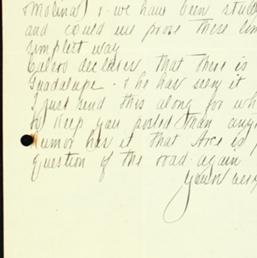 Molina! & we have been stud
and could we prove these lin
simplest way
Calero declares that there is
Guadalupe & he has seen it
I just send this along for wh
to keep you posted than any
Rumor has it that Arce is
question of the road again
Yours very